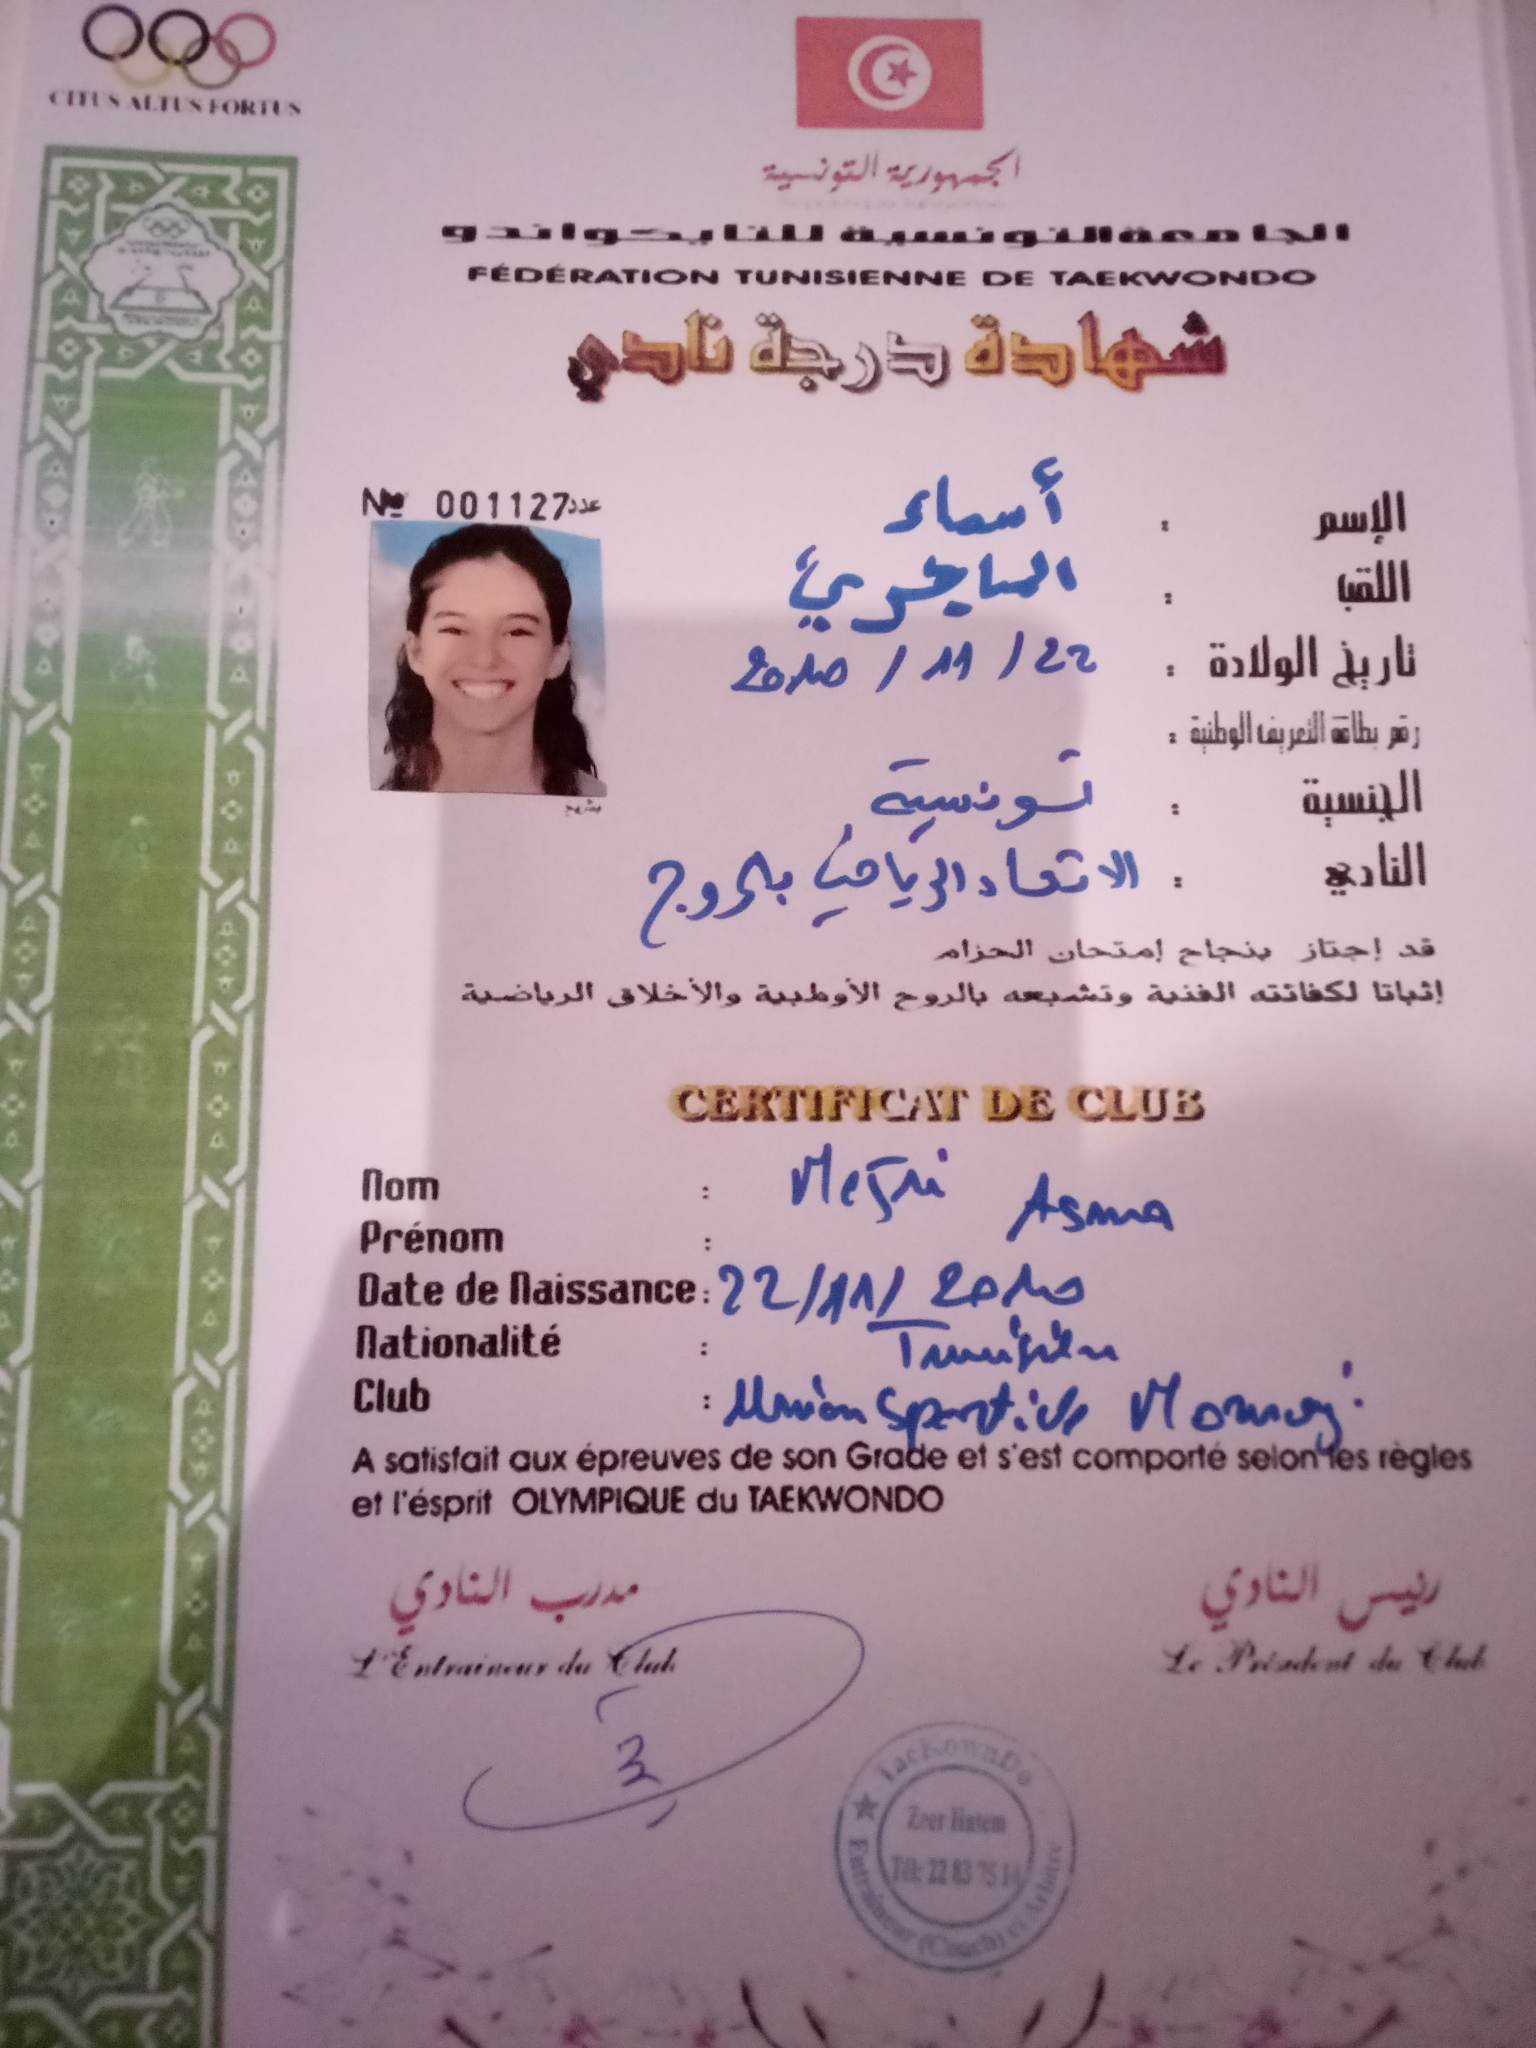 CITUS ALTUS FORTUS
الجمهورية التونسية
الجامعة التونسية للتايكواندو
FÉDÉRATION TUNISIENNE DE TAEKWONDO
شهادة درجة نادي
№ 001127 عدد
الإسم : أسماء
اللقب : الماجري
تاريخ الولادة : 22 / 11 /
رقم بطاقة التعريف الوطنية :
الجنسية : تونسية
النادي : الاتحاد الرياضي بالمروج
قد إجتاز بنجاح إمتحان الحزام
إثباتا لكفائته الفنية وتشبعه بالروح الأولمبية والأخلاق الرياضية
CERTIFICAT DE CLUB
Nom : Mejri
Prénom : Asma
Date de Naissance : 22/11/
Nationalité : Tunisien
Club : Union Sportive
A satisfait aux épreuves de son Grade et s'est comporté selon les règles
et l'ésprit OLYMPIQUE du TAEKWONDO
مدرب النادي
L'Entraineur du Club
رئيس النادي
Le Président du Club
TaeKownDo
Zeer Hatem
Entraineur (Coach) et Arbitre